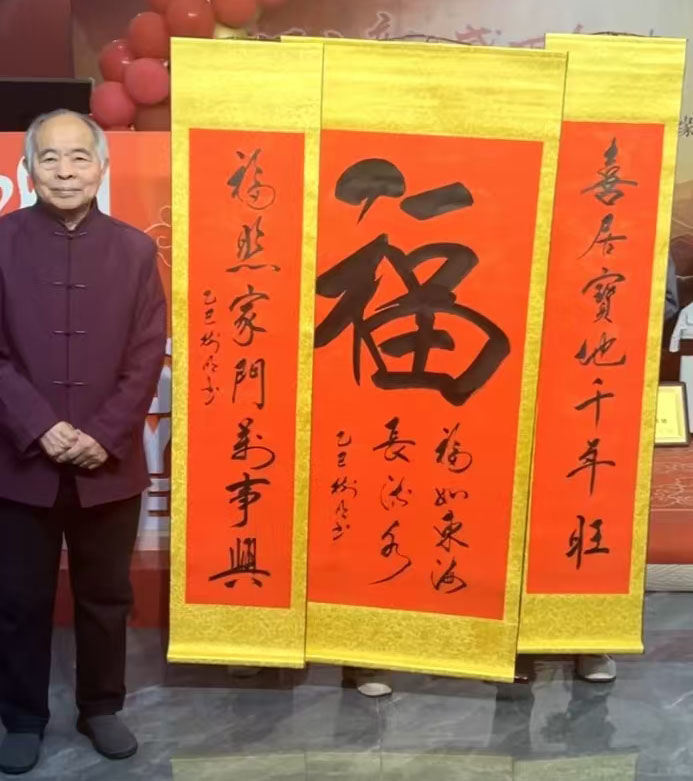 喜居寶地千年旺
福
福如東海
長流水
乙巳 书
福照家門萬事興
乙巳 书